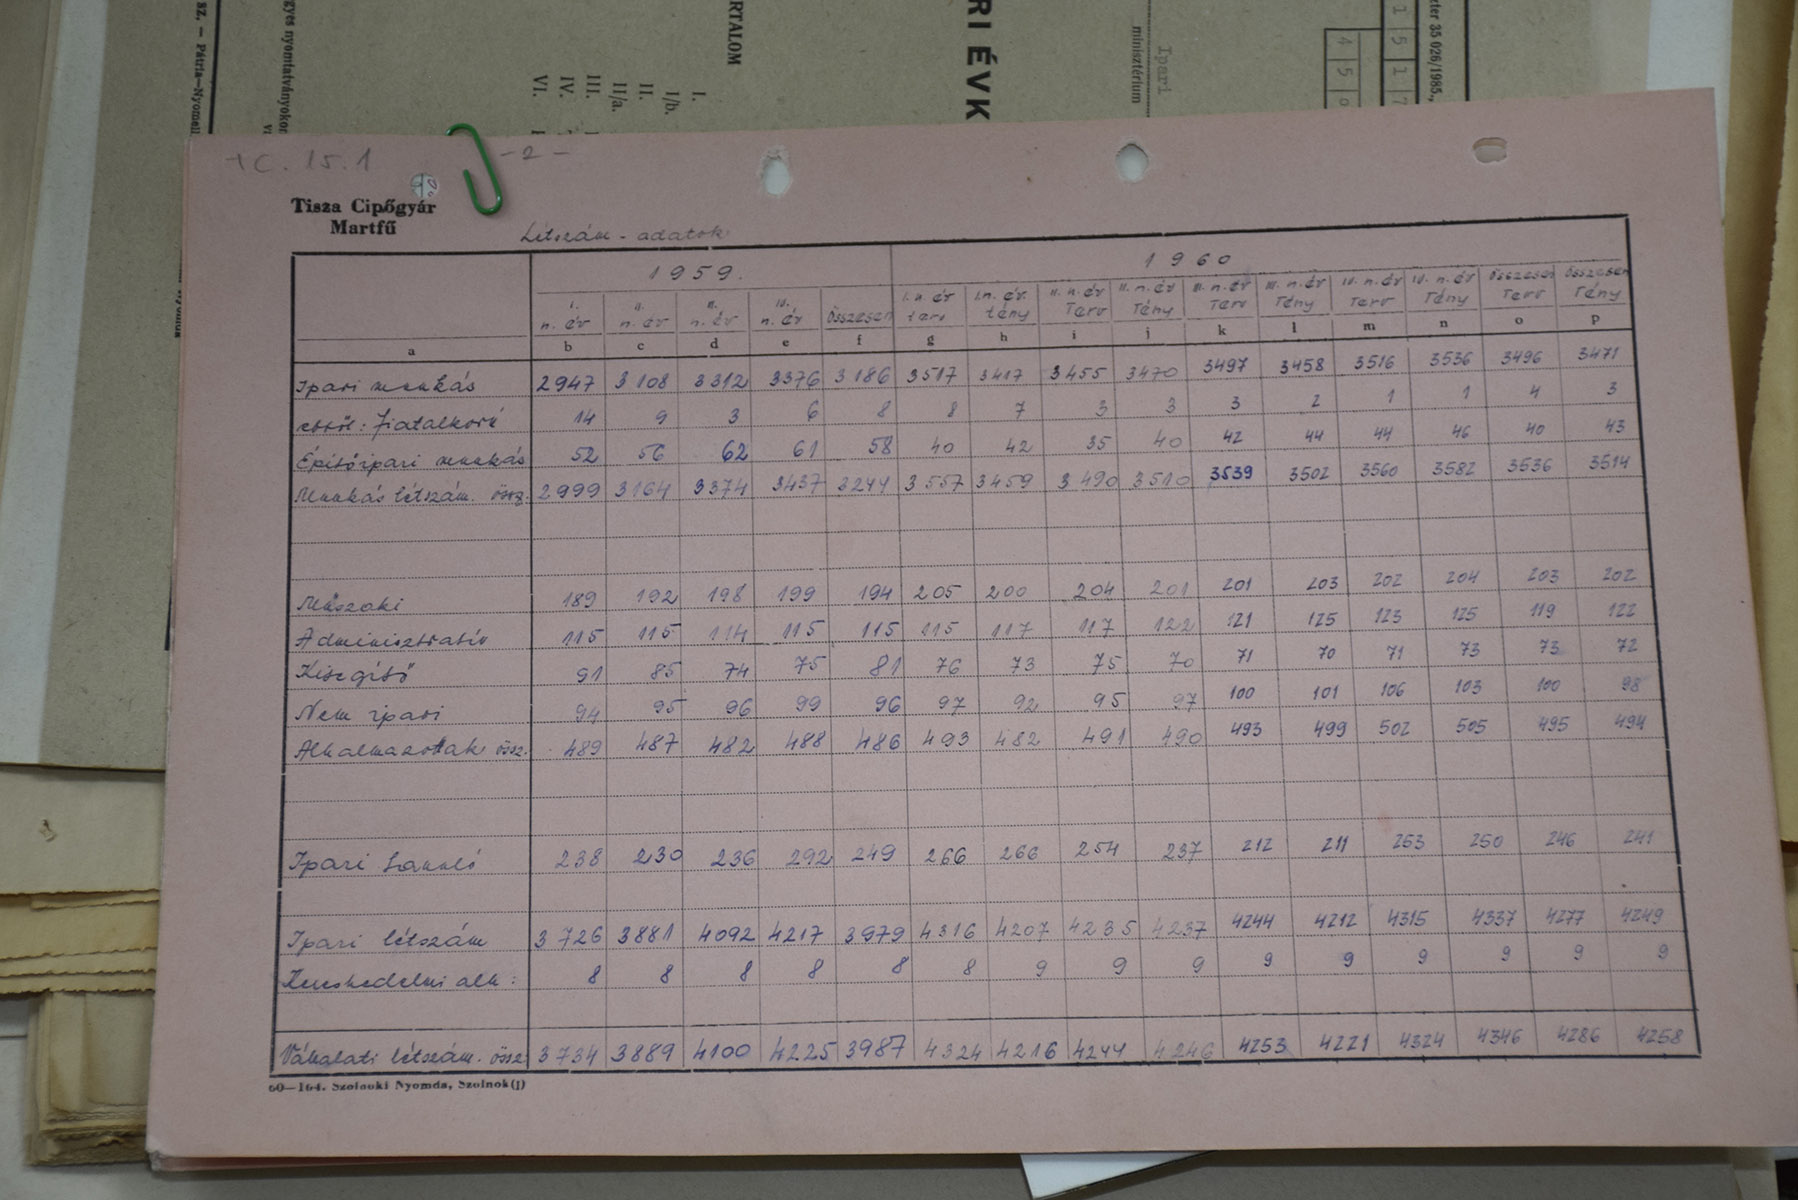 sz. — Pátria-Nyomell
gyes nyomtatványokon
RTALOM
I.
I/b.
II.
II/a.
III.
IV.
VI.
RI ÉVK
Ipari
minisztérium
4 5
1 5 1 7
zter 35 026/1985.,
TC. 15.1
- 2 -
Tisza Cipőgyár
Martfű
Létszám - adatok
1959. 1960
I. n. év II. n. év III. n. év IV. n. év Összesen I. n. év terv I. n. év tény II. n. év Terv II. n. év Tény III. n. év Terv III. n. év Tény IV. n. év Terv IV. n. év Tény Összesen Terv Összesen Tény
a b c d e f g h i j k l m n o p
Ipari munkás 2947 3108 3312 3376 3186 3517 3417 3455 3470 3497 3458 3516 3536 3496 3471
ebből: fiatalkorú 14 9 3 6 8 8 7 3 3 3 2 1 1 4 3
Építőipari munkás 52 56 62 61 58 40 42 35 40 42 44 44 46 40 43
Munkás létszám. össz. 2999 3164 3374 3437 3244 3557 3459 3490 3510 3539 3502 3560 3582 3536 3514
Műszaki 189 192 198 199 194 205 200 204 201 201 203 202 204 203 202
Adminisztratív 115 115 114 115 115 115 117 117 122 121 125 123 125 119 122
Kisegítő 91 85 74 75 81 76 73 75 70 71 70 71 73 73 72
Nem ipari 94 95 96 99 96 97 92 95 97 100 101 106 103 100 98
Alkalmazottak össz. 489 487 482 488 486 493 482 491 490 493 499 502 505 495 494
Ipari tanuló 238 230 236 292 249 266 266 254 237 212 211 253 250 246 241
Ipari létszám 3726 3881 4092 4217 3979 4316 4207 4235 4237 4244 4212 4315 4337 4277 4249
Kereskedelmi alk: 8 8 8 8 8 8 9 9 9 9 9 9 9 9 9
Vállalati létszám. össz 3734 3889 4100 4225 3987 4324 4216 4244 4246 4253 4221 4324 4346 4286 4258
60—164. Szolnoki Nyomda, Szolnok (J)